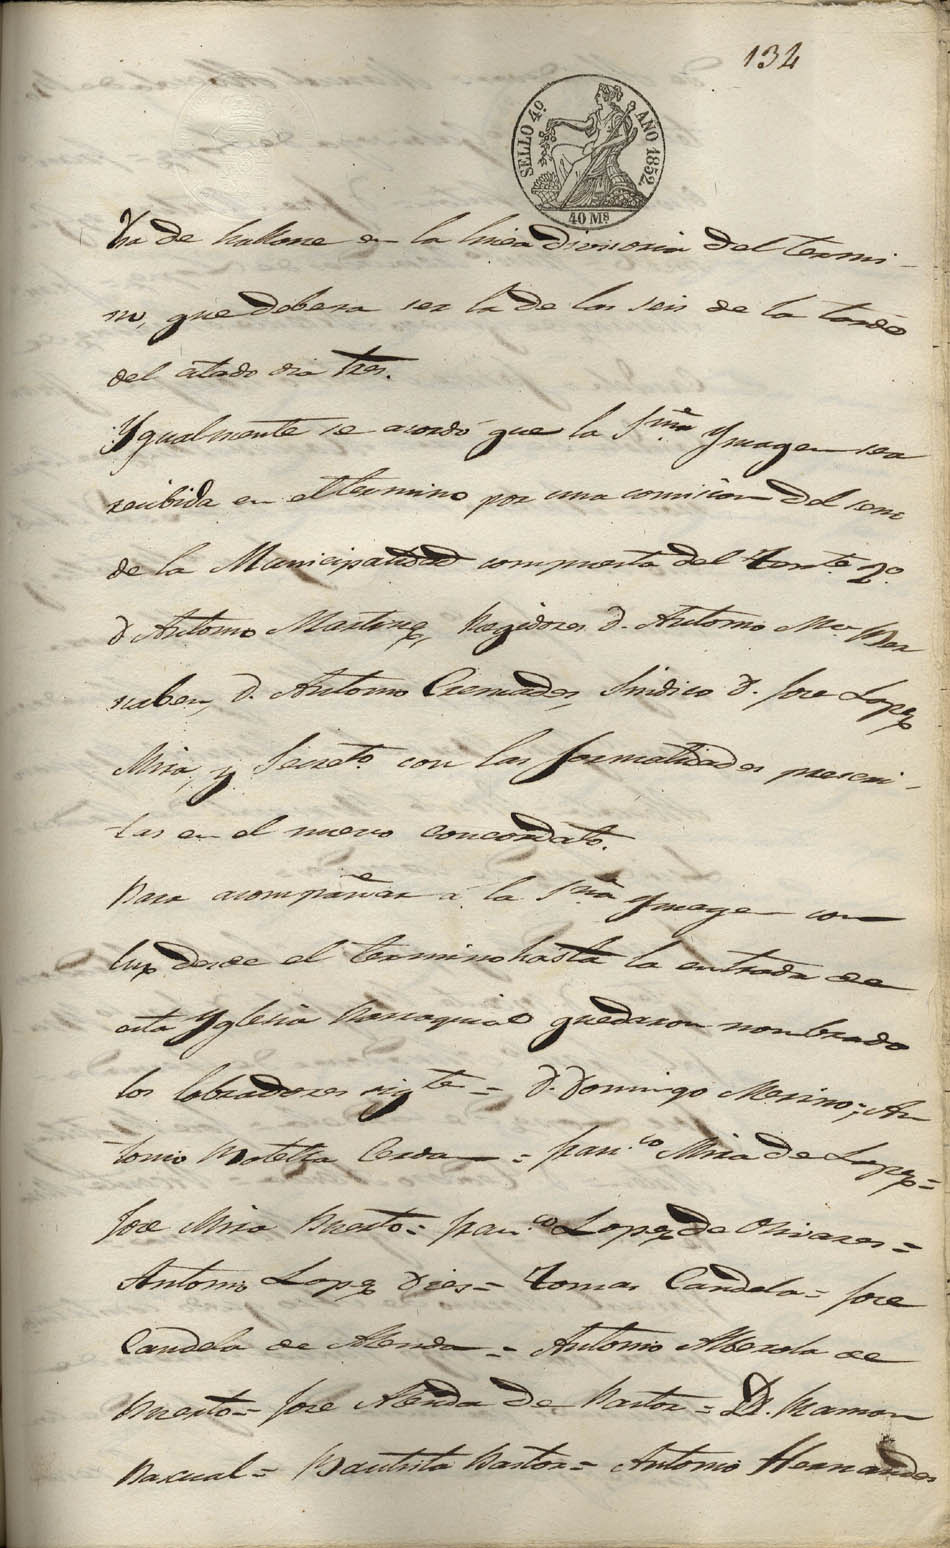 134
SELLO 4º. AÑO 1852
40 Ms
ha de hallarse en la linea divisoria del termi-
no, que debera ser la de las seis de la tarde
del citado dia tres.
Ygualmente se acordó que la Sma Ymagen sea
recibida en el termino por una comision del seno
de la Municipalidad compuesta del Tente 2º.
D Antonio Martinez, Regidores D. Antonio Mª Ber
nabeu, D. Antonio Cremades, Sindico D. Jose Lopez
Mira, y Secreto con las formalidades prescri-
tas en el nuevo concordato.
Para acompañar á la Sma Ymagen con
luz desde el termino hasta la entrada de
esta Yglesia Parroquial quedaron nombrado
los labradores sigtes = D. Domingo Merino; An
tonio Botella Cerda = Franco Mira de Lopez =
Jose Mira Puerto = Franco Lopez de Olivares =
Antonio Lopez Dies = Tomas Candela = Jose
Candela de Alenda = Antonio Alberola de
Puerto = Jose Alenda de Pastor = D. Ramon
Pascual = Bautista Pastor = Antonio Hernandes